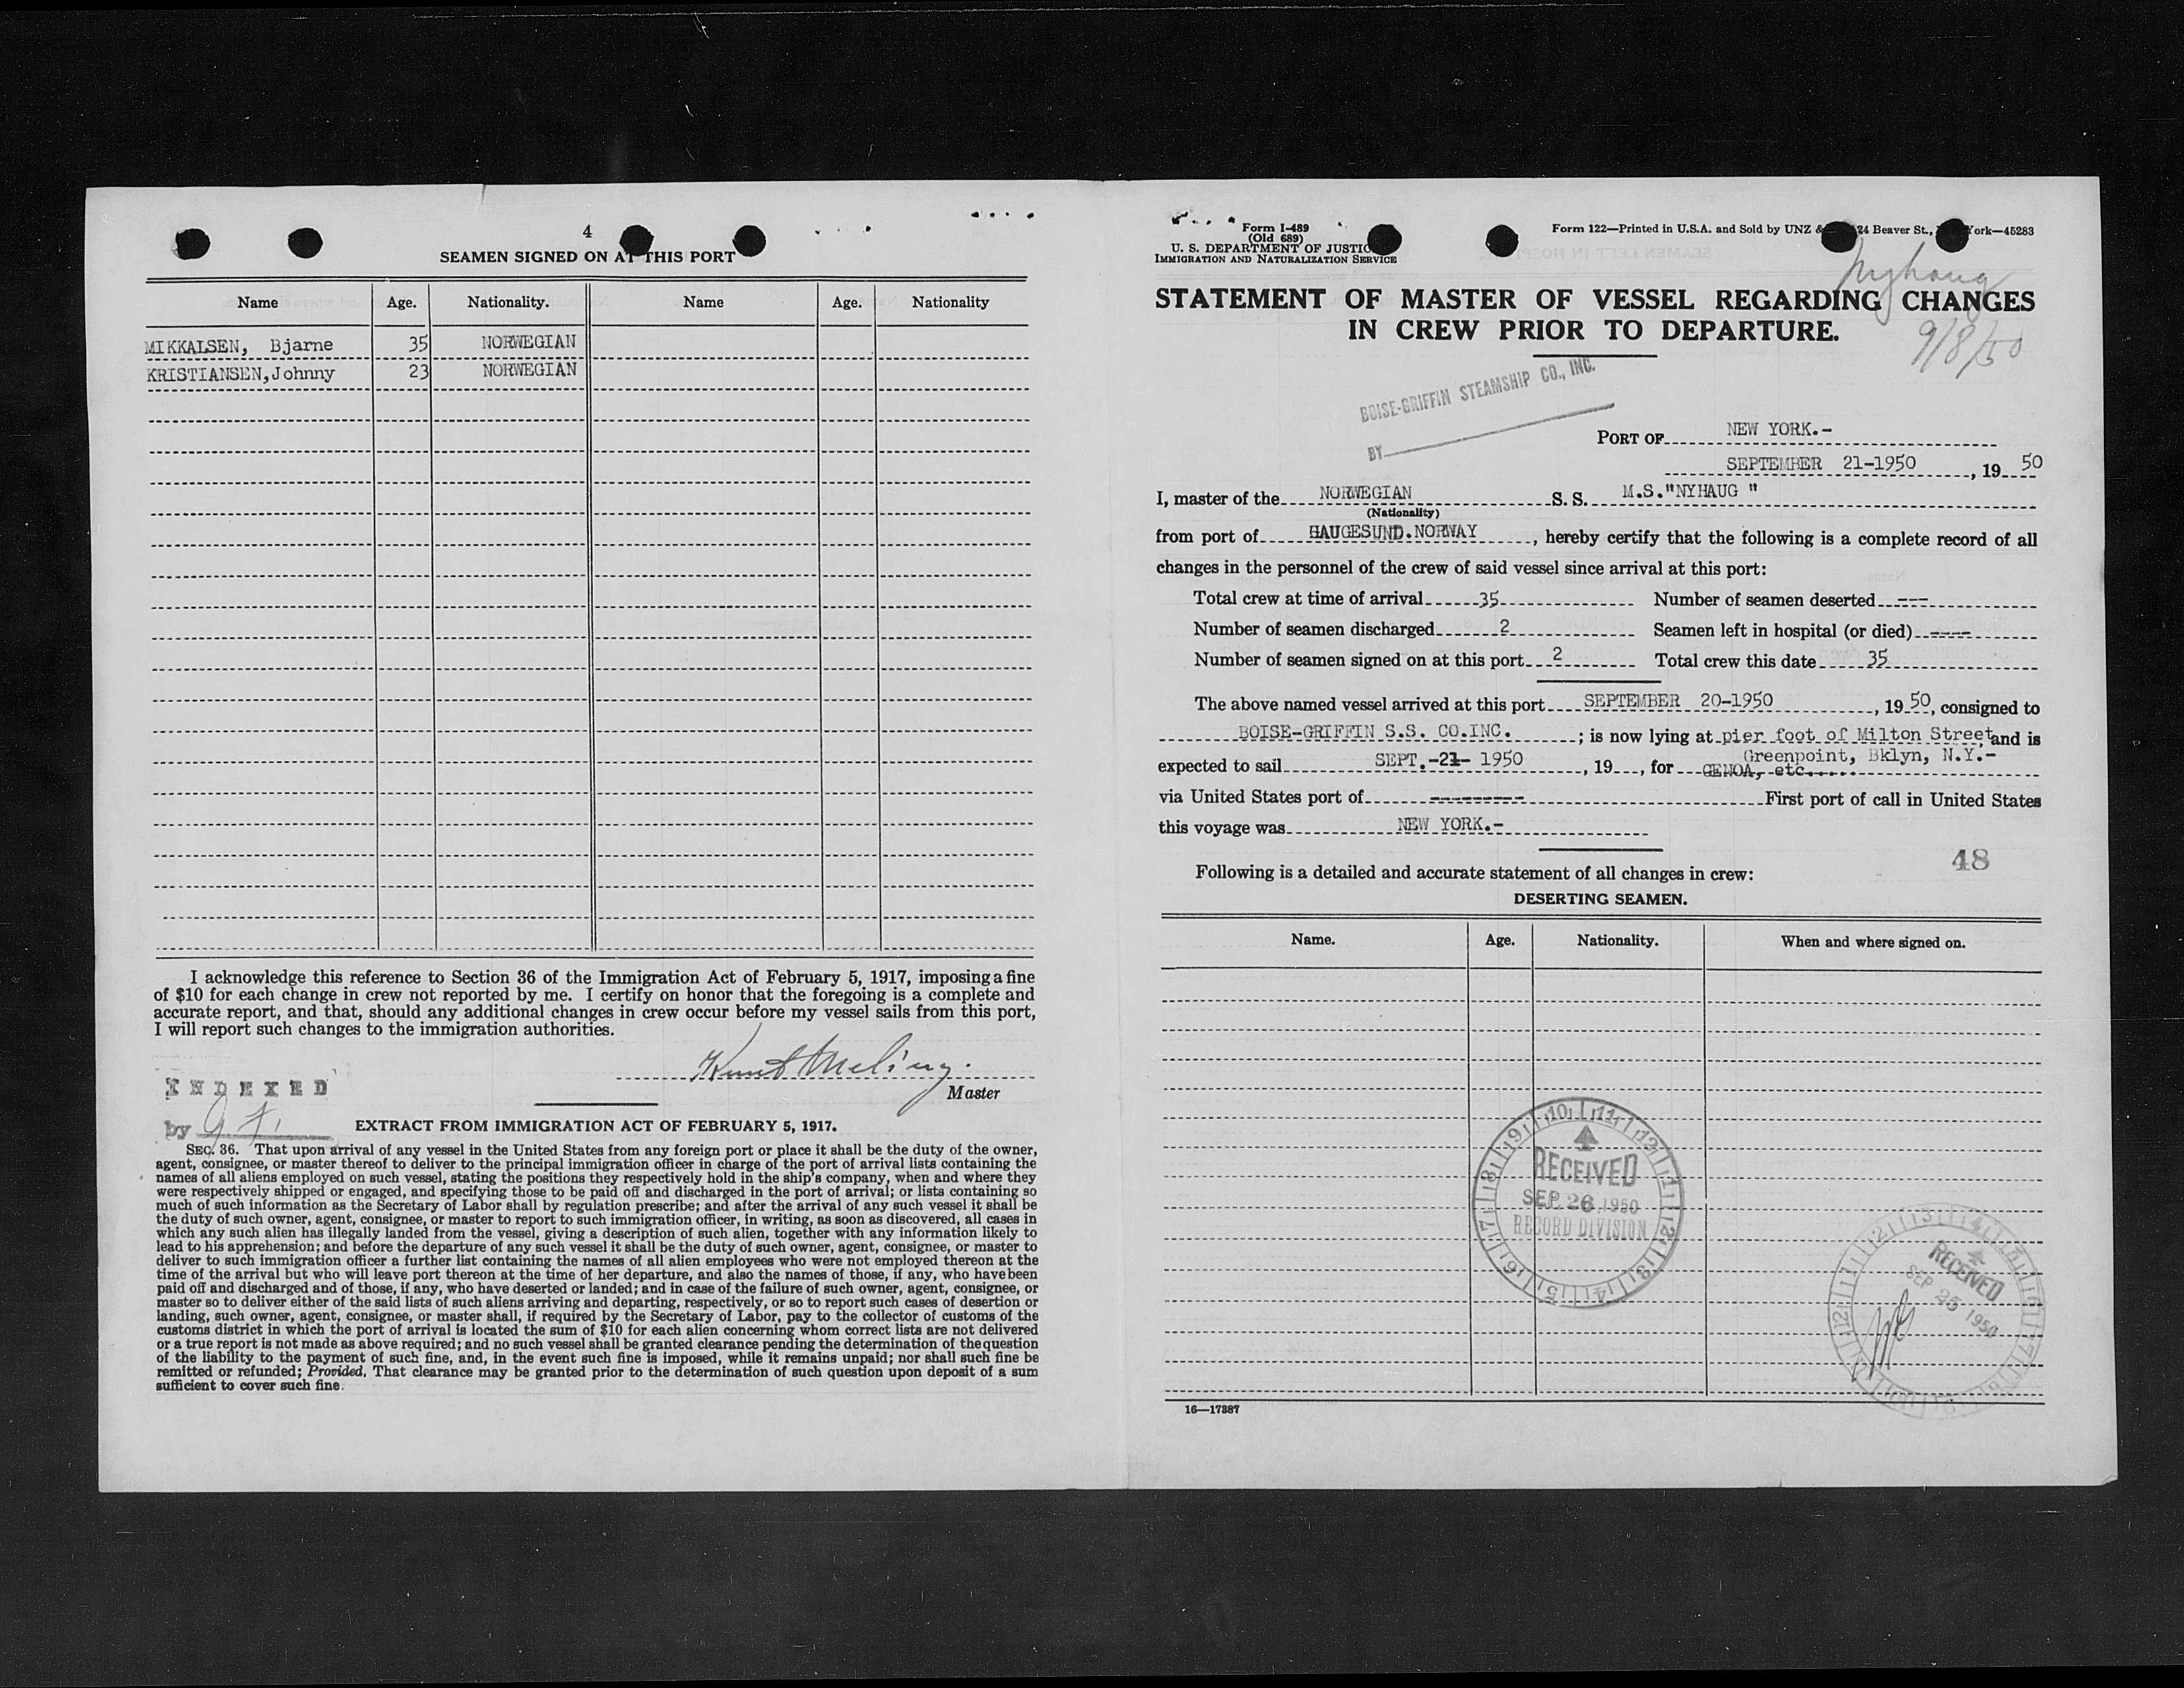 4
SEAMEN SIGNED ON AT THIS PORT
Name Age. Nationality. Name Age. Nationality
MIKKALSEN, Bjarne 35 NORWEGIAN
KRISTIANSEN, Johnny 23 NORWEGIAN
I acknowledge this reference to Section 36 of the Immigration Act of February 5, 1917, imposing a fine
of $10 for each change in crew not reported by me. I certify on honor that the foregoing is a complete and
accurate report, and that, should any additional changes in crew occur before my vessel sails from this port,
I will report such changes to the immigration authorities.
Knut Meling.
Master
INDEXED
by
EXTRACT FROM IMMIGRATION ACT OF FEBRUARY 5, 1917.
SEC. 36. That upon arrival of any vessel in the United States from any foreign port or place it shall be the duty of the owner,
agent, consignee, or master thereof to deliver to the principal immigration officer in charge of the port of arrival lists containing the
names of all aliens employed on such vessel, stating the positions they respectively hold in the ship's company, when and where they
were respectively shipped or engaged, and specifying those to be paid off and discharged in the port of arrival; or lists containing so
much of such information as the Secretary of Labor shall by regulation prescribe; and after the arrival of any such vessel it shall be
the duty of such owner, agent, consignee, or master to report to such immigration officer, in writing, as soon as discovered, all cases in
which any such alien has illegally landed from the vessel, giving a description of such alien, together with any information likely to
lead to his apprehension; and before the departure of any such vessel it shall be the duty of such owner, agent, consignee, or master to
deliver to such immigration officer a further list containing the names of all alien employees who were not employed thereon at the
time of the arrival but who will leave port thereon at the time of her departure, and also the names of those, if any, who have been
paid off and discharged and of those, if any, who have deserted or landed; and in case of the failure of such owner, agent, consignee, or
master so to deliver either of the said lists of such aliens arriving and departing, respectively, or so to report such cases of desertion or
landing, such owner, agent, consignee, or master shall, if required by the Secretary of Labor, pay to the collector of customs of the
customs district in which the port of arrival is located the sum of $10 for each alien concerning whom correct lists are not delivered
or a true report is not made as above required; and no such vessel shall be granted clearance pending the determination of the question
of the liability to the payment of such fine, and, in the event such fine is imposed, while it remains unpaid; nor shall such fine be
remitted or refunded; Provided, That clearance may be granted prior to the determination of such question upon deposit of a sum
sufficient to cover such fine.
Form I-489
(Old 689)
U. S. DEPARTMENT OF JUSTIC
IMMIGRATION AND NATURALIZATION SERVICE
Form 122—Printed in U.S.A. and Sold by UNZ & 24 Beaver St., York—45283
Nyhaug
STATEMENT OF MASTER OF VESSEL REGARDING CHANGES
IN CREW PRIOR TO DEPARTURE.
9/8/50
BOISE-GRIFFIN STEAMSHIP CO., INC.
BY
PORT OF NEW YORK.-
SEPTEMBER 21-1950, 19 50
I, master of the NORWEGIAN S. S. M.S."NYHAUG "
(Nationality)
from port of HAUGESUND.NORWAY, hereby certify that the following is a complete record of all
changes in the personnel of the crew of said vessel since arrival at this port:
Total crew at time of arrival 35 Number of seamen deserted ---
Number of seamen discharged 2 Seamen left in hospital (or died) ----
Number of seamen signed on at this port 2 Total crew this date 35
The above named vessel arrived at this port SEPTEMBER 20-1950, 19 50, consigned to
BOISE-GRIFFIN S.S. CO.INC. ; is now lying at pier foot of Milton Street and is
Greenpoint, Bklyn, N.Y.-
expected to sail SEPT.-21- 1950, 19 , for GENOA, etc.....
via United States port of --------- First port of call in United States
this voyage was NEW YORK.-
48
Following is a detailed and accurate statement of all changes in crew:
DESERTING SEAMEN.
Name. Age. Nationality. When and where signed on.
RECEIVED
SEP 26 1950
RECORD DIVISION
RECEIVED
SEP 25 1950
16—17387